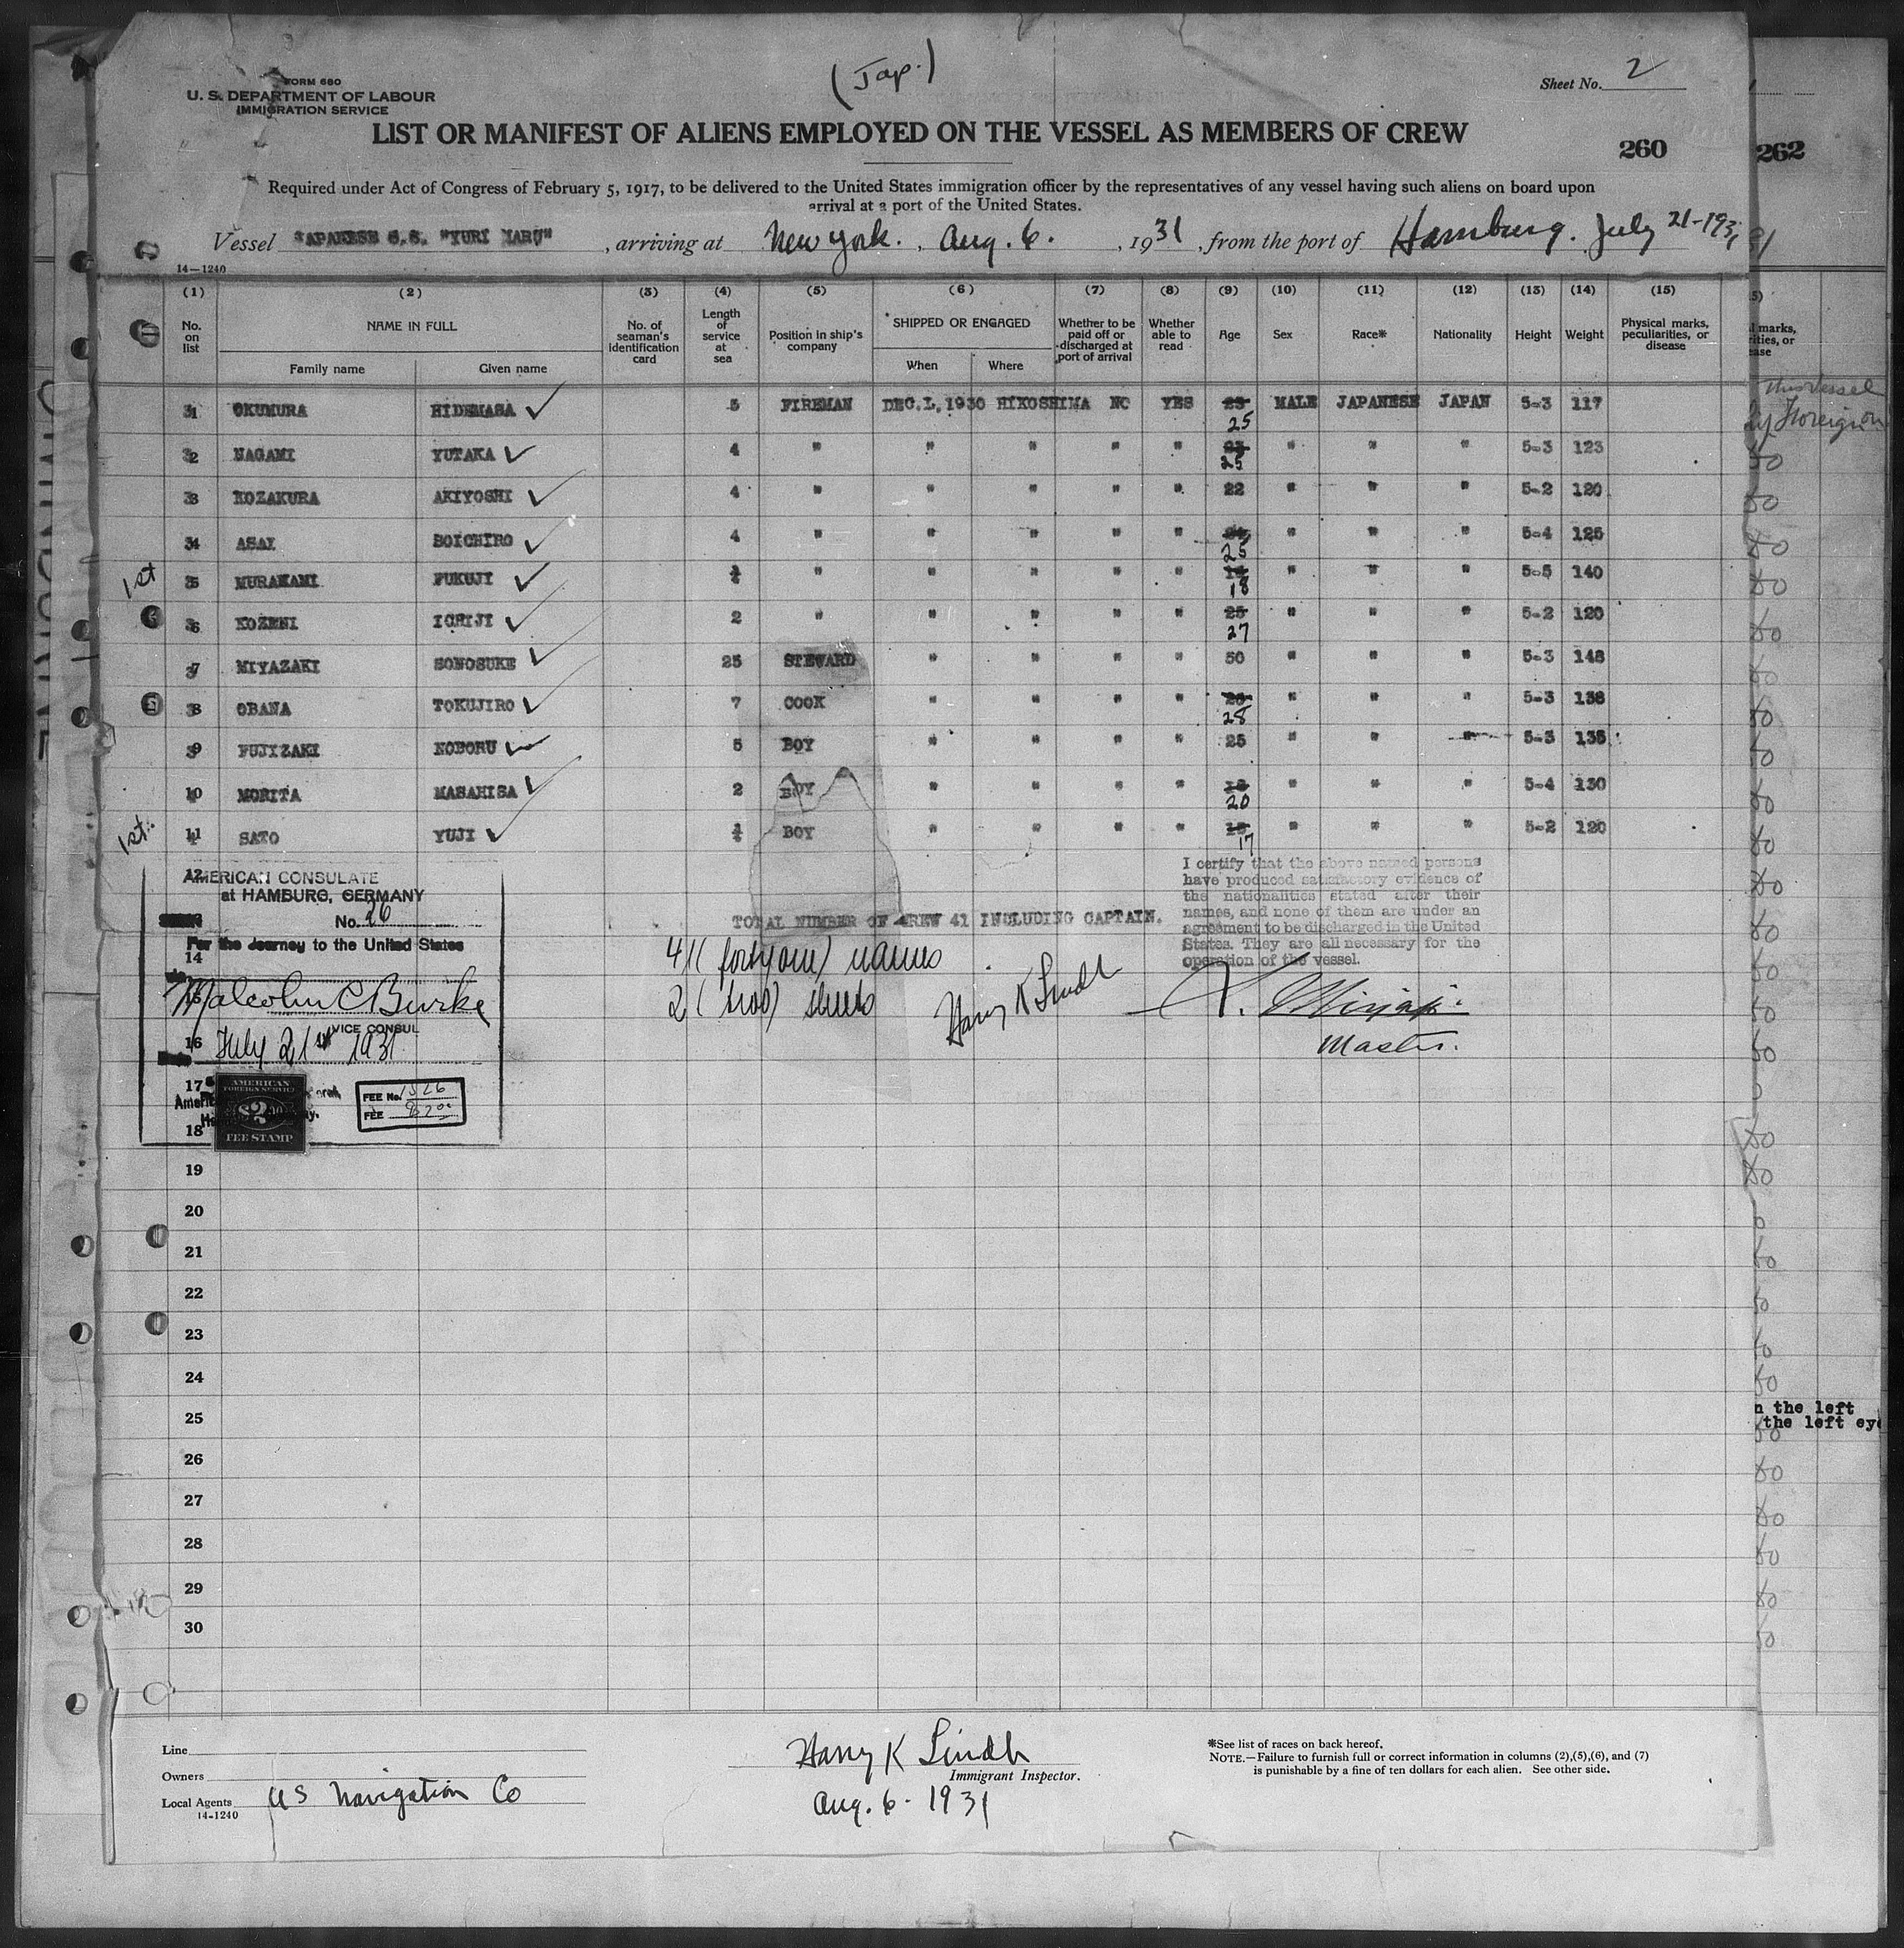 (Jap.)
FORM 680
U. S. DEPARTMENT OF LABOUR
IMMIGRATION SERVICE
Sheet No. 2
LIST OR MANIFEST OF ALIENS EMPLOYED ON THE VESSEL AS MEMBERS OF CREW
260
262
Required under Act of Congress of February 5, 1917, to be delivered to the United States immigration officer by the representatives of any vessel having such aliens on board upon
arrival at a port of the United States.
Vessel "APANESE S.S. "YURI MARU", arriving at New York., Aug. 6., 1931, from the port of Hamburg. July 21-1931
14—1240
(1) (2) (3) (4) (5) (6) (7) (8) (9) (10) (11) (12) (13) (14) (15)
No. on list NAME IN FULL Family name Given name No. of seaman's identification card Length of service at sea Position in ship's company SHIPPED OR ENGAGED When Where Whether to be paid off or discharged at port of arrival Whether able to read Age Sex Race* Nationality Height Weight Physical marks, peculiarities, or disease
31 OKUMURA HIDEMASA 5 FIREMAN DEC.1,1930 HIKOSHIMA NO YES 23 25 MALE JAPANESE JAPAN 5-3 117
32 NAGAMI YUTAKA 4 " " " " " 23 25 " " " 5-3 123
33 KOZAKURA AKIYOSHI 4 " " " " " 22 " " " 5-2 120
34 ASAI SOICHIRO 4 " " " " " 25 " " " 5-4 125
1st 35 MURAKAMI FUKUJI " " " " " 18 " " " 5-5 140
36 KOZENI ICHIJI 2 " " " " " 25 27 " " " 5-2 120
37 MIYAZAKI SONOSUKE 25 STEWARD " " " " 50 " " " 5-3 148
38 OBANA TOKUJIRO 7 COOK " " " " 28 " " " 5-3 138
39 FUJIZAKI NOBORU 5 BOY " " " " 25 " " " 5-3 135
40 MORITA MASAHISA 2 BOY " " " " 18 20 " " " 5-4 130
1st. 41 SATO YUJI BOY " " " " 15 17 " " " 5-2 120
12
AMERICAN CONSULATE
at HAMBURG, GERMANY
No. 26
For the Journey to the United States
14
Malcolm C Burke
15
VICE CONSUL
16 July 21st 1931
17
AMERICAN
FOREIGN SERVICE
$2.00
FEE STAMP
FEE No. 1526
FEE $2.00
18
TOTAL NUMBER OF CREW 41 INCLUDING CAPTAIN.
41 (fortyone) names
2 (two) sheets
Harry K Lindh
I certify that the above named persons
have produced satisfactory evidence of
the nationalities stated after their
names, and none of them are under an
agreement to be discharged in the United
States. They are all necessary for the
operation of the vessel.
Master.
19
20
21
22
23
24
25
26
27
28
29
30
this Vessel
Foreign
n the left
the left eye
Line
Owners
Local Agents US Navigation Co
14-1240
Harry K Lindh
Immigrant Inspector.
Aug. 6. 1931
*See list of races on back hereof.
NOTE.—Failure to furnish full or correct information in columns (2),(5),(6), and (7)
is punishable by a fine of ten dollars for each alien. See other side.